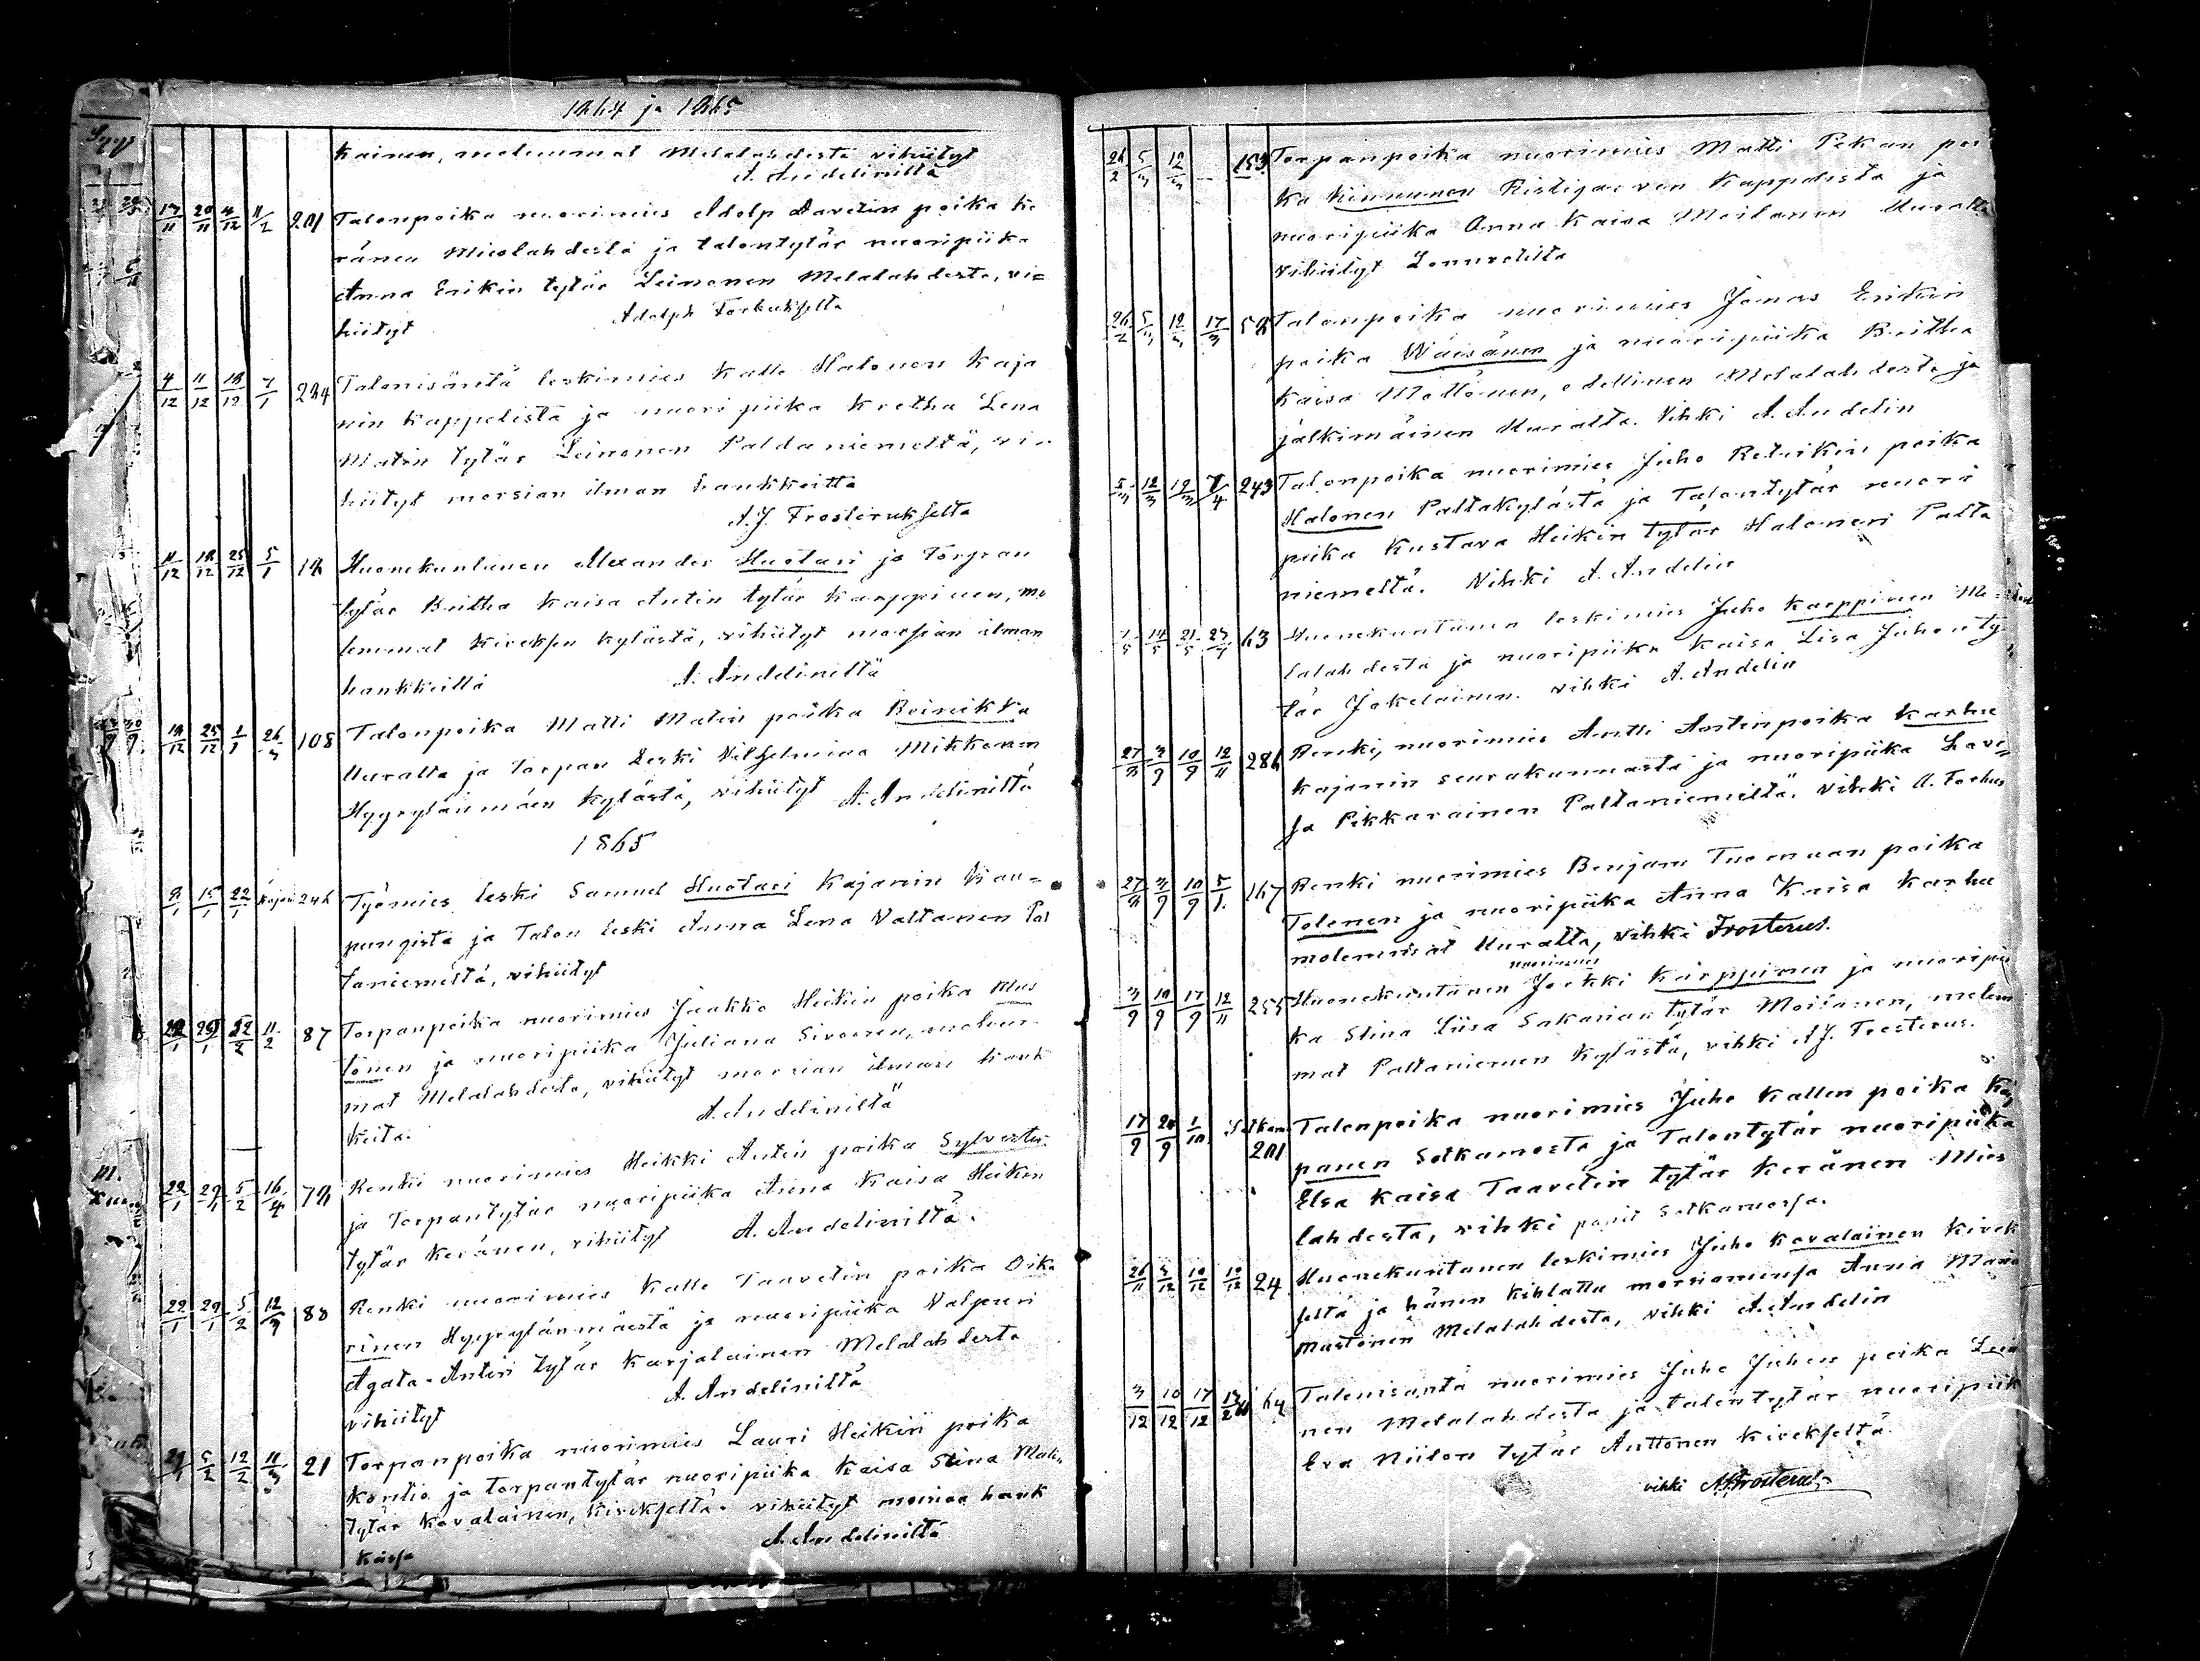 1864 ja 1865
kainen, molemmat Melalahdesta vihiityt
A. Andeliniltä
13/11 20/11 4/12 11/2 201 Talonpoika nuorimies Adolp Davetin poika Ke
ränen Mieslahdesta ja talontytär nuoripiika
Anna Erikin tytär Leinonen Melalahdesta, vi=
hiityt Adolph Forbukselta
4/12 11/12 18/12 7/1 234 Talonisäntä leskimies Kalle Halonen Kaja
nin kappelista ja nuori piika Kretha Lena
Matin tytär Leinonen Paldaniemeltä, vi=
hiityt morsian ilman hankkeitta
A.J. Frosterukselta
11/12 18/12 25/12 5/1 Huonekuntanen Alexander Huotari ja Torpan
tytär Britha Kaisa Antin tytär Karppinen, mo
lemmat Kiveksen kylästä, vihiityt morsian ilman
hankkeitta A. Andeliniltä
18/12 25/12 1/1 26/3 108 Talonpoika Matti Matin poika Beinikka
Uuralta ja Torpan Leski Vilhelmina Mikkonen
Hyyrylänmäen kylästä, vihiityt A. Andeliniltä
1865
8/1 15/1 22/1 Kajan 246 Työmies leski Samuel Huotari Kajanin Kau=
pungista ja Talon leski Anna Lena Valtanen Pal
taniemeltä, vihiityt
11/2 87 Torpanpoika nuorimies Jaakko Heikin poika Mus
tonen ja nuoripiika Juliana Sivonen, molem
mat Melalahdesta, vihiityt morsian ilman hank
keita. A. Andeliniltä
22/1 29/1 5/2 16/4 78 Renki nuorimies Heikki Antin poika Sylvester
ja Torpantytär nuoripiika Anna Kaisa Heikin
tytär Keränen, vihiityt A. Andeliniltä.
22/1 29/1 5/2 12/3 88 Renki nuorimies Kalle Taavetin poika Oika
rinen Hyyrylänmäestä ja nuoripiika Valpuri
Agata Antin tytär Karjalainen Melalahdesta
vihiityt A. Andeliniltä
29/1 5/2 12/2 11/3 21 Torpanpoika nuorimies Lauri Heikin poika
Kontio ja torpantytär nuoripiika Kaisa Stina Matin
tytär Kovalainen, Kivekseltä. vihiityt hank
A. Andeliniltä
26/2 5/3 12/3 153 Torpanpoika nuorimies Matti Pekan poi
ka Kinnunen Ristijärven Kappelista ja
nuoripiika Anna Kaisa Moilanen Uuralta
vihiityt
26/2 5/3 12/3 17/3 58 Talonpoika nuorimies Jonas Erikin
poika Wäisänen ja nuoripiika Britha
Kaisa Möttönen, edellinen Melalahdesta ja
jälkimäinen Uuralta. Vihki A. Andelin
5/3 12/3 19/3 7/4 243 Talonpoika nuorimies Juho Retrikin poika
Halonen Paltakylästä ja Talontytär nuori
piika Kustava Heikin tytär Halonen Palta
niemeltä. Vihki A. Andelin
7/5 14/5 21/5 63 Huonekuntanen leskimies Juho Karppinen Me
lalahdesta ja nuoripiika Kaisa Lisa Juhon ty
tär Jokelainen. vihki A. Andelin
3/9 10/9 12/11 286 Renki, nuorimies Antti Antinpoika Karhu
Kajanin seurakunnasta ja nuoripiika Lovi=
sa Pikkarainen Paltaniemeltä. Vihki A. Forbus
3/9 10/9 5/1 167 Renki nuorimies Benjam Tuomaan poika
Tolonen ja nuoripiika Anna Kaisa Karhu
molemmat Uuralta, vihki Frosterus.
nuorimies
3/9 10/9 17/9 12/11 255 Huonekuntanen Jerkki Kärppinen ja nuoripii
ka Stina Liisa Sakarian tytär Moilanen, molem
mat Paltaniemen kylästä, vihki A.J. Frosterus.
17/9 24/9 1/10 Sotkam 201 Talonpoika nuorimies Juho Kallen poika Kop
panen Sotkamosta ja Talontytär nuoripiika
Elsa Kaisa Taavetin tytär Keränen Mies
lahdesta, vihki Sotkamossa.
26/11 3/12 10/12 24 Huonekuntanen leskimies Juho Kovalainen Kivek
seltä ja hänen kihlattu morsiamensa Anna Maria
Mustonen Melalahdesta, vihki A. Andelin
3/12 10/12 17/12 64 Talonisäntä nuorimies Juho Juhon poika Leino
nen Melalahdesta ja talontytär nuoripiik
Eva Niilon tytär Anttonen Kivekseltä
vihki A.J. Frosterus